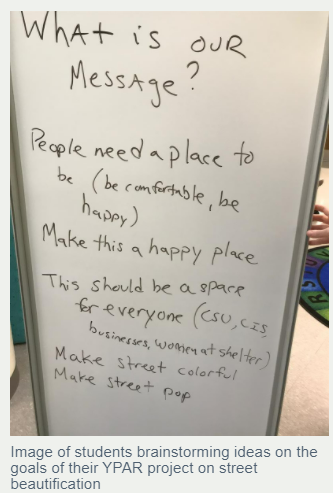 What is OUR
Message?
People need a place to
be (be comfortable, be
happy)
Make this a happy place
This should be a space
for everyone (CSU, CIS,
businesses, women at shelter)
Make street colorful
Make street pop
Image of students brainstorming ideas on the
goals of their YPAR project on street
beautification